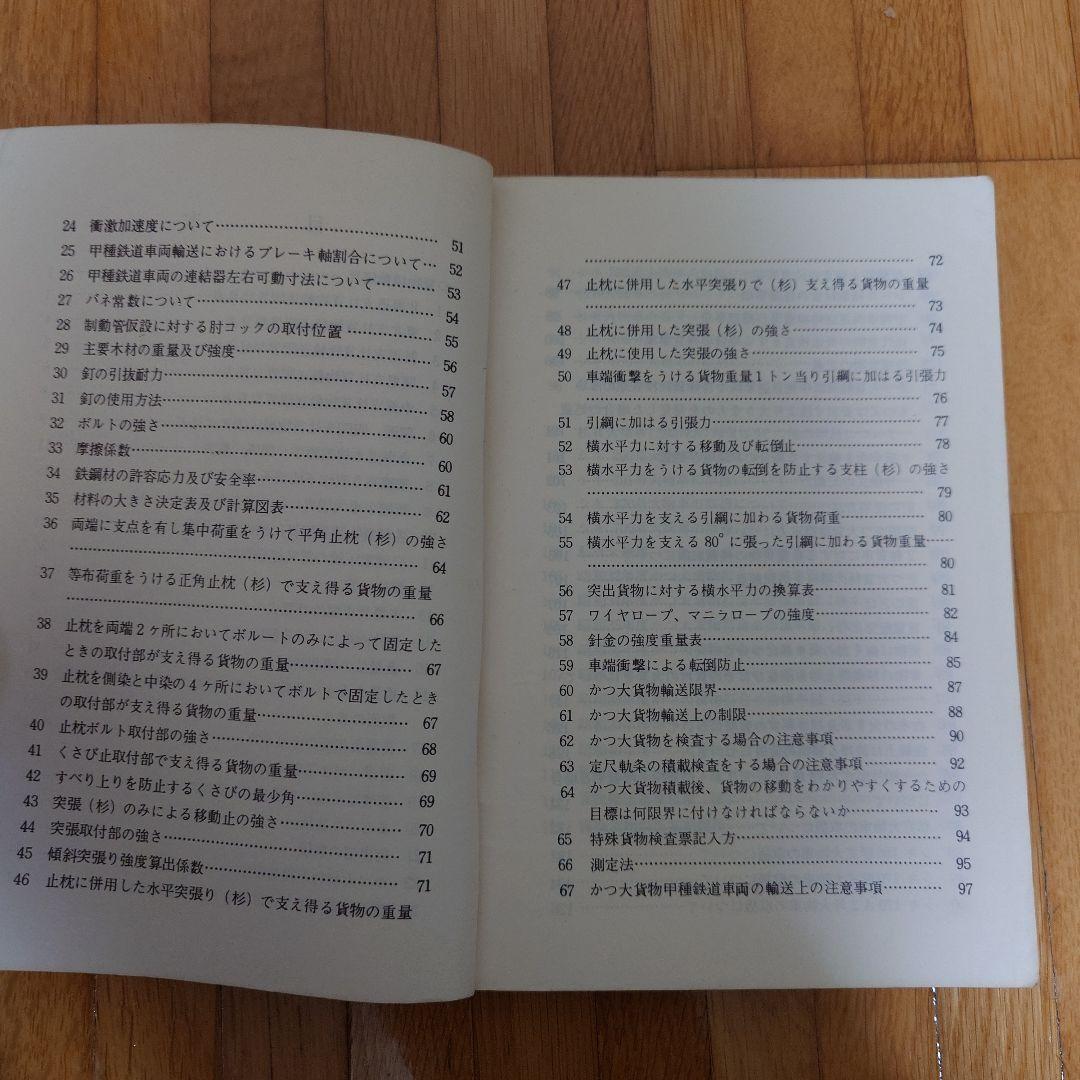 24 衝激加速度について……………………………… 51
25 甲種鉄道車両輸送におけるブレーキ軸割合について… 52
26 甲種鉄道車両の連結器左右可動寸法について………… 53
27 バネ常数について……………………………… 54
28 制動管仮設に対する肘コックの取付位置……………… 55
29 主要木材の重量及び強度……………………………… 56
30 釘の引抜耐力……………………………… 57
31 釘の使用方法……………………………… 58
32 ボルトの強さ……………………………… 60
33 摩擦係数……………………………… 60
34 鉄鋼材の許容応力及び安全率……………………… 61
35 材料の大きさ決定表及び計算図表…………………… 62
36 両端に支点を有し集中荷重をうけて平角止枕(杉)の強さ
……………………………… 64
37 等布荷重をうける正角止枕(杉)で支え得る貨物の重量
……………………………… 66
38 止枕を両端2ヶ所においてボルートのみによって固定した
ときの取付部が支え得る貨物の重量……………… 67
39 止枕を側染と中染の4ヶ所においてボルトで固定したとき
の取付部が支え得る貨物の重量…………………… 67
40 止枕ボルト取付部の強さ……………………… 68
41 くさび止取付部で支え得る貨物の重量……………… 69
42 すべり上りを防止するくさびの最少角……………… 69
43 突張(杉)のみによる移動止の強さ……………… 70
44 突張取付部の強さ……………………………… 71
45 傾斜突張り強度算出係数……………………… 71
46 止枕に併用した水平突張り(杉)で支え得る貨物の重量
……………………………… 72
47 止枕に併用した水平突張りで(杉)支え得る貨物の重量
……………………………… 73
48 止枕に併用した突張(杉)の強さ……………… 74
49 止枕に使用した突張の強さ……………………… 75
50 車端衝撃をうける貨物重量1トン当り引綱に加はる引張力
……………………………… 76
51 引綱に加はる引張力……………………………… 77
52 横水平力に対する移動及び転倒止……………… 78
53 横水平力をうける貨物の転倒を防止する支柱(杉)の強さ
……………………………… 79
54 横水平力を支える引綱に加わる貨物荷重………… 80
55 横水平力を支える80°に張った引綱に加わる貨物重量……
……………………………… 80
56 突出貨物に対する横水平力の換算表……………… 81
57 ワイヤロープ、マニラロープの強度……………… 82
58 針金の強度重量表……………………………… 84
59 車端衝撃による転倒防止……………………… 85
60 かつ大貨物輸送限界……………………………… 87
61 かつ大貨物輸送上の制限……………………… 88
62 かつ大貨物を検査する場合の注意事項…………… 90
63 定尺軌条の積載検査をする場合の注意事項………… 92
64 かつ大貨物積載後、貨物の移動をわかりやすくするための
目標は何限界に付けなければならないか………… 93
65 特殊貨物検査票記入方……………………… 94
66 測定法……………………………… 95
67 かつ大貨物甲種鉄道車両の輸送上の注意事項………… 97